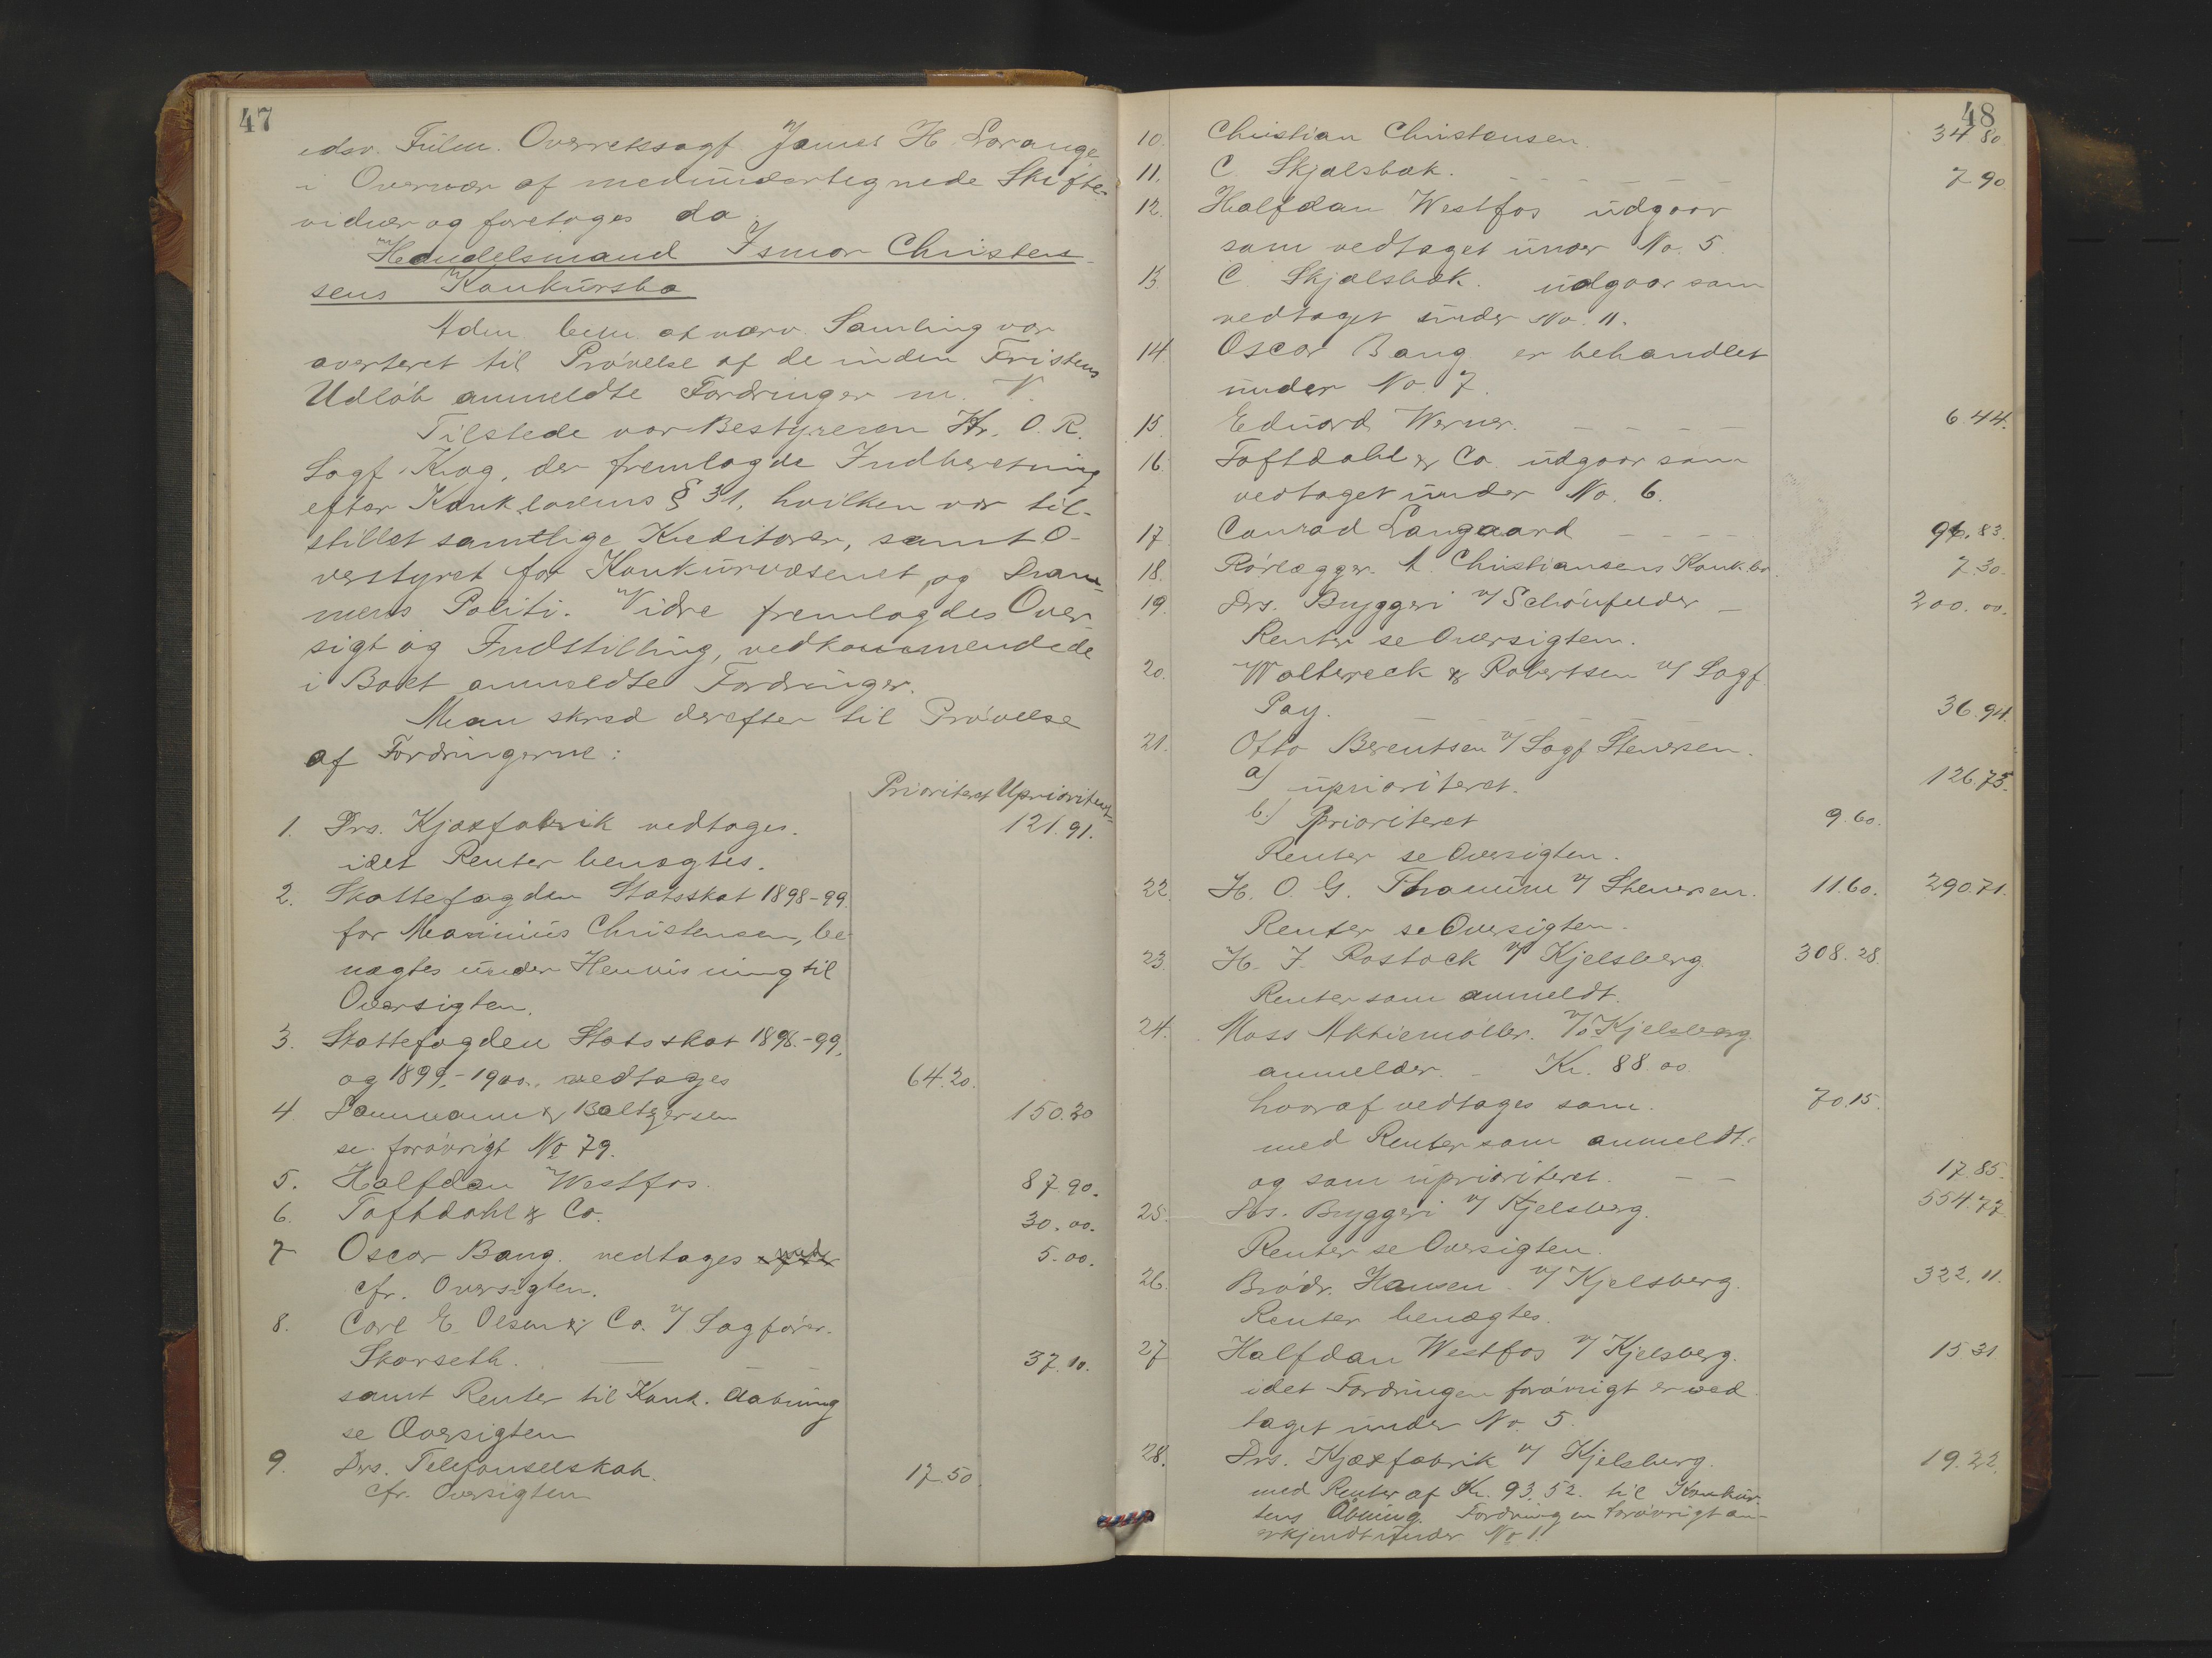 47
edsv. Fulm. Overretssagf. James H. Lorange
i Overvær af medundertegnede Skifte-
vidner og foretoges da
Handelsmand Ismar Christen-
sens Konkursbo
Adm. bem. at nærv. Samling var
averteret til Prövelse af de inden Fristens
Udløb anmeldte Fordringer m. V.
Tilstede var Bestyreren Hr. O. R.
Sagf. Krog, der fremlagde Indberetning
efter Konk.lovens § 31, hvilken var til-
stillet samtlige Kreditorer, samt O-
verstyret for Konkursvæsenet, og Dram-
mens Politi. Vidre fremlagdes Over-
sigt og Indstilling, vedkommendede
i Boet anmeldte Fordringer.
Man skred derefter til Prövelse
af Fordringerne:
Prioriteret Uprioriteret
1. Drs. Kjæxfabrik vedtages. 121.91.
idet Renter benægtes.
2. Skattefogden Statsskat 1898-99.
for Marinius Christensen, be-
nægtes under Henvisning til
Oversigten.
3. Skattefogden Statsskat 1898.-99,
og 1899.-1900. vedtages 64.20.
4 Dannmann & Baltzersen 150.20
se forövrigt No 79.
5. Halfdan Westfos. 87.90.
6. Toftdahl & Co. 30.00.
7 Oscar Bang. vedtages 5.00.
cfr. Oversigten.
8. Carl E. Olsen & Co. v/ Sagförer.
Skarseth. 37.10.
samt Renter til Konk. Aabning
se Oversigten
9. Drs. Telefonselskab. 17.50
cfr. Oversigten
48
10. Christian Christensen 34 80.
11. C. Skjælsbæk. 7.90
12. Halfdan Westfos udgaar
som vedtaget under No. 5.
13 C. Skjælsbæk. udgaar som
vedtaget under No. 11.
14. Oscar Bang er behandlet
under No. 7.
15. Eduard Werner. 6.44.
16. Toftdahl & Co. udgaar som
vedtaget under No. 6.
17. Conrad Langaard 96.83.
18. Rörlægger A. Christiansens Konk.bo. 7.30.
19. Drs. Bryggeri v/ Schönfelder 200.00.
Renter se Oversigten.
20. Woltereck & Robertsen v/ Sagf.
Pay. 36.94.
21. Otto Berentsen v/ Sagf. Stenersen.
a) uprioriteret. 126.75.
b.) Prioriteret 9.60.
Renter se Oversigten.
22. H. O. G. Thaumm v/ Stenersen. 11.60. 290.71.
Renter se Oversigten.
23. H. J. Rostock v/ Kjelsberg. 308.28.
Renter som anmeldt.
24. Moss Aktiemöller. v/ Kjelsberg.
anmelder. Kr. 88.00
hvoraf vedtages som. 70.15.
med Renter som anmeldt.
og som uprioriteret. 17.85.
25. Drs. Bryggeri v/ Kjelsberg. 554.77
Renter se Oversigten.
26. Brödr. Hansen. v/ Kjelsberg. 322.11.
Renter benægtes.
27 Halfdan Westfos v/ Kjelsberg. 15 31
idet Fordringen forövrigt er ved-
taget under No. 5.
28. Drs. Kjæxfabrik v/ Kjelsberg. 19.22.
med Renter af Kr. 93.52. til Konkur-
sens Åbning. Fordringen forövrigt an-
erkjendt under No 1.